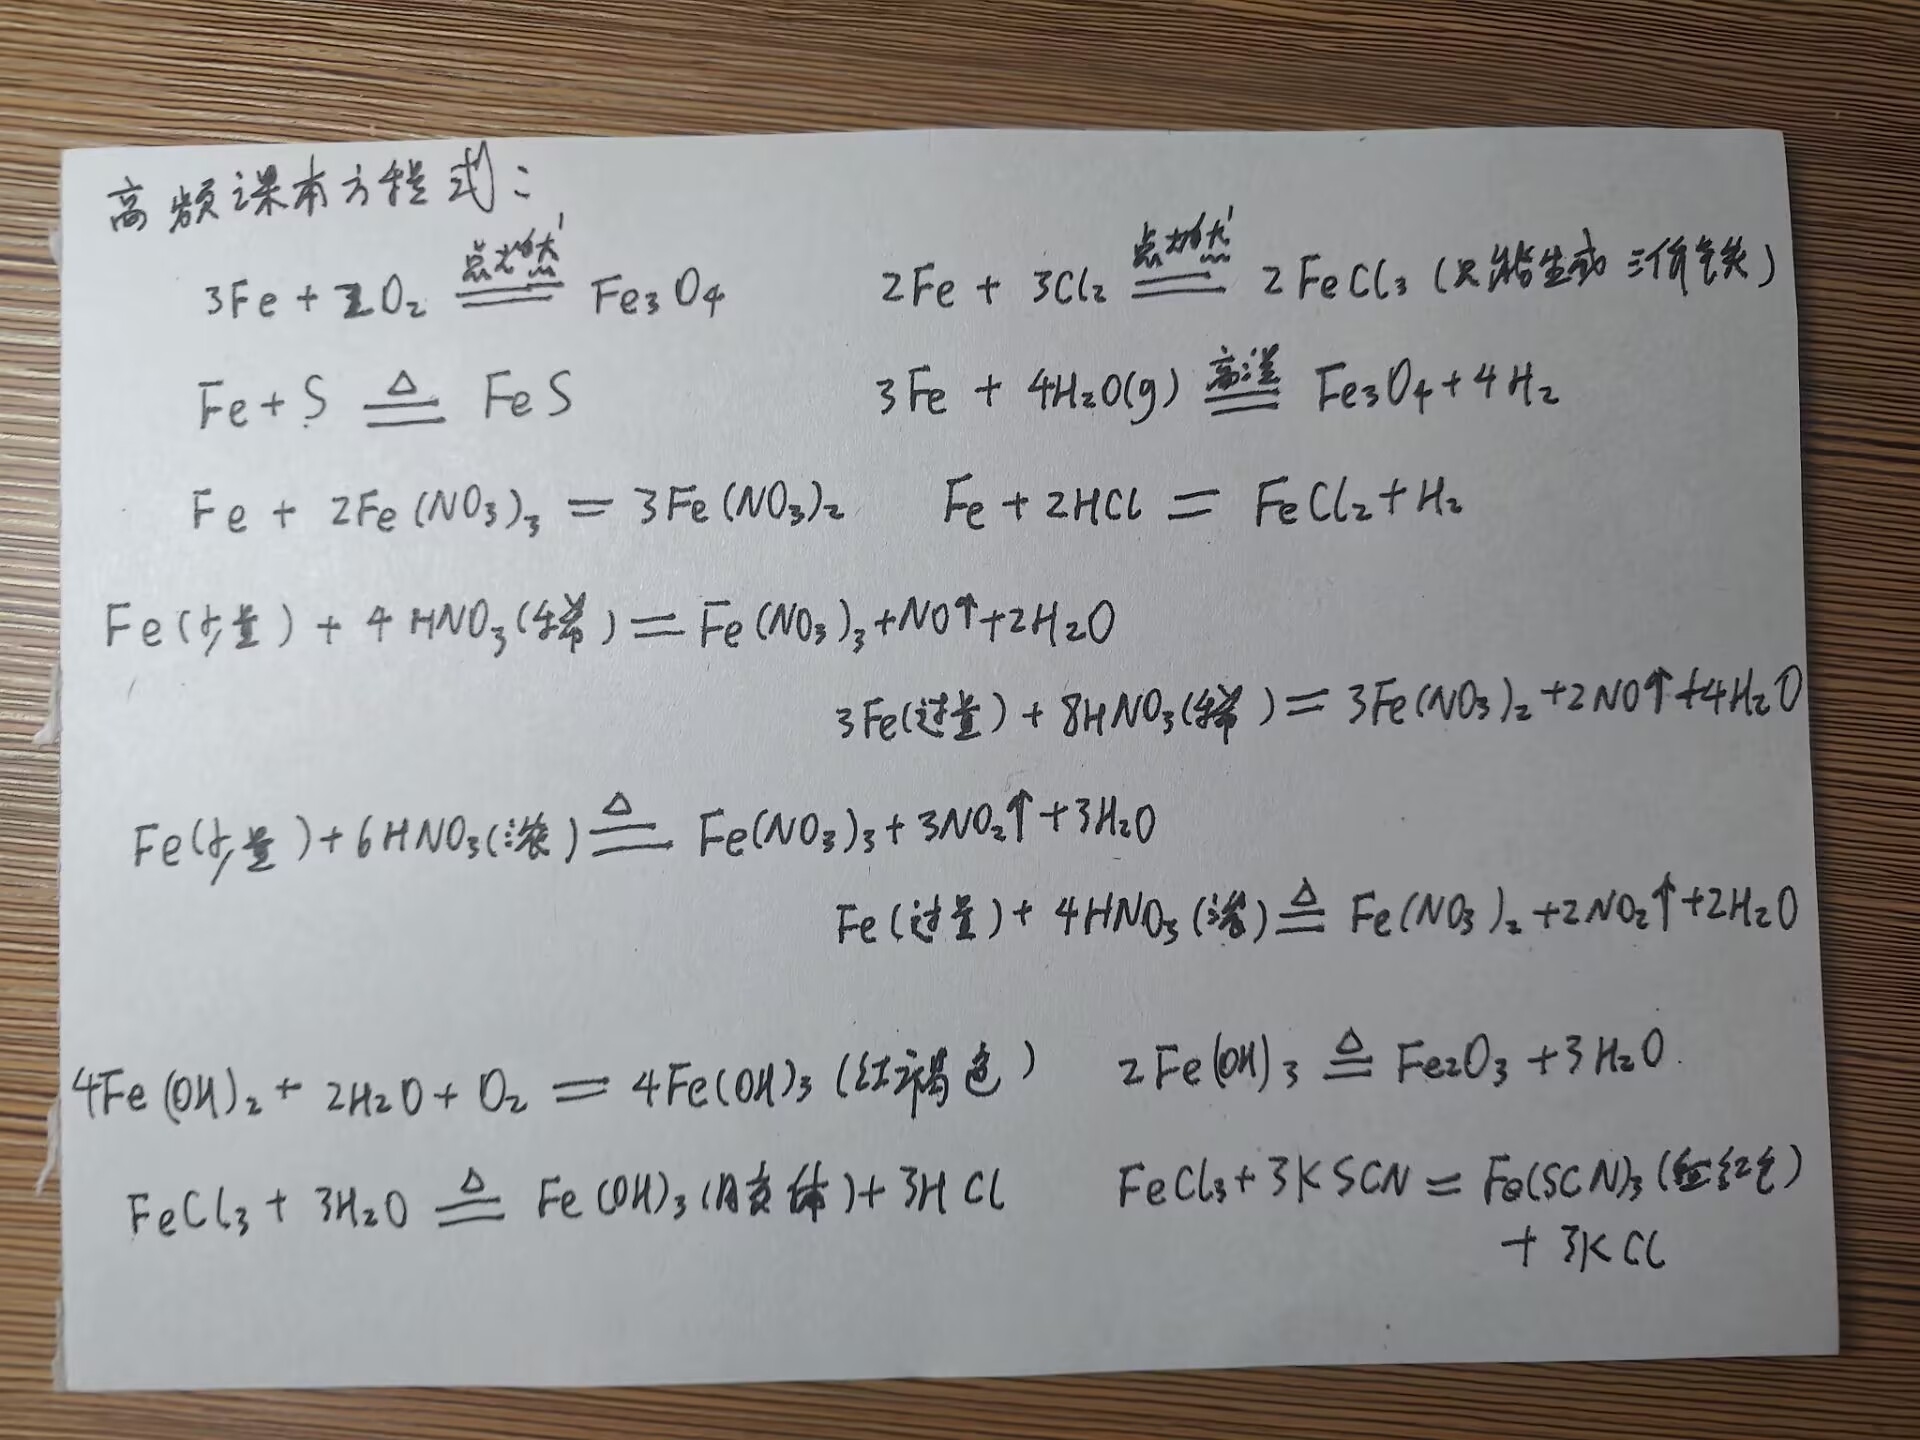 高频课本方程式：
3Fe + 2O₂ =点燃= Fe₃O₄
2Fe + 3Cl₂ =点燃= 2FeCl₃ (只能生成三价铁)
Fe + S =△= FeS
3Fe + 4H₂O(g) =高温= Fe₃O₄ + 4H₂
Fe + 2Fe(NO₃)₃ = 3Fe(NO₃)₂
Fe + 2HCl = FeCl₂ + H₂
Fe(少量) + 4HNO₃(稀) = Fe(NO₃)₃ + NO↑ + 2H₂O
3Fe(过量) + 8HNO₃(稀) = 3Fe(NO₃)₂ + 2NO↑ + 4H₂O
Fe(少量) + 6HNO₃(浓) =△= Fe(NO₃)₃ + 3NO₂↑ + 3H₂O
Fe(过量) + 4HNO₃(浓) =△= Fe(NO₃)₂ + 2NO₂↑ + 2H₂O
4Fe(OH)₂ + 2H₂O + O₂ = 4Fe(OH)₃ (红褐色)
2Fe(OH)₃ =△= Fe₂O₃ + 3H₂O
FeCl₃ + 3H₂O =△= Fe(OH)₃(胶体) + 3HCl
FeCl₃ + 3KSCN = Fe(SCN)₃ (血红色)
+ 3KCl